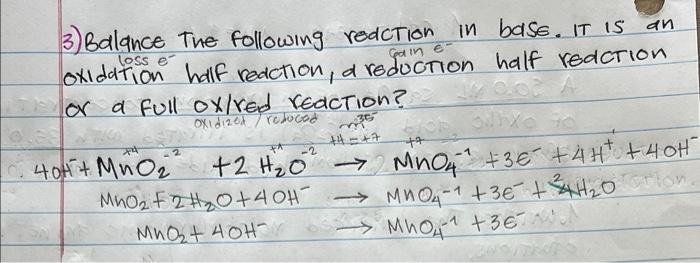 3) Balance The following redction in base. IT IS an
loss e⁻ Gain e⁻
oxidation half reaction, a reduction half reaction
or a full ox/red reaction?
oxidized / reduced
+4 -2 +1 -2 +4 = +7 3e⁻ +7
4OH⁻ + MnO₂ + 2 H₂O → MnO₄⁻¹ + 3e⁻ + 4H⁺ + 4OH⁻
MnO₂ + 2H₂O + 4OH⁻ → MnO₄⁻¹ + 3e⁻ + 2 4H₂O
MnO₂ + 4OH⁻ → MnO₄⁻¹ + 3e⁻